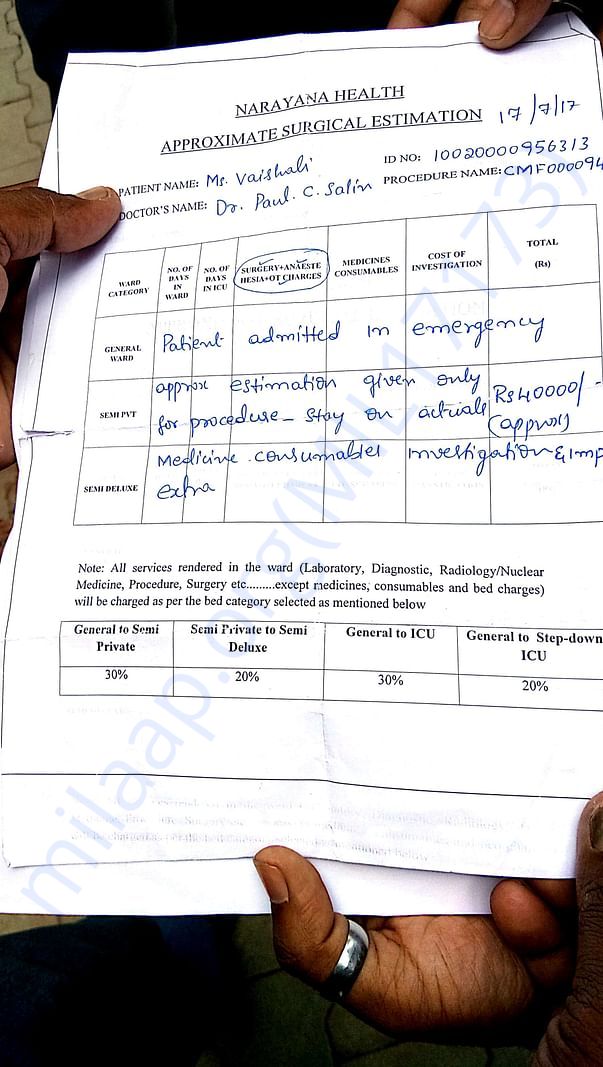 NARAYANA HEALTH
APPROXIMATE SURGICAL ESTIMATION 17/7/17
PATIENT NAME: Ms. Vaishali ID NO: 10020000956313
DOCTOR'S NAME: Dr. Paul. C. Salin PROCEDURE NAME: CMF000094
WARD CATEGORY NO. OF DAYS IN WARD NO. OF DAYS IN ICU SURGERY+ANAESTE HESIA+OT CHARGES MEDICINES CONSUMABLES COST OF INVESTIGATION TOTAL (Rs)
GENERAL WARD Patient admitted in emergency
approx estimation given only
SEMI PVT for procedure - stay on actuals Rs 40000/- (approx)
Medicine consumables investigation & imp
SEMI DELUXE extra
Note: All services rendered in the ward (Laboratory, Diagnostic, Radiology/Nuclear
Medicine, Procedure, Surgery etc.........except medicines, consumables and bed charges)
will be charged as per the bed category selected as mentioned below
General to Semi Private Semi Private to Semi Deluxe General to ICU General to Step-down ICU
30% 20% 30% 20%
milaap.org(MIL17173)